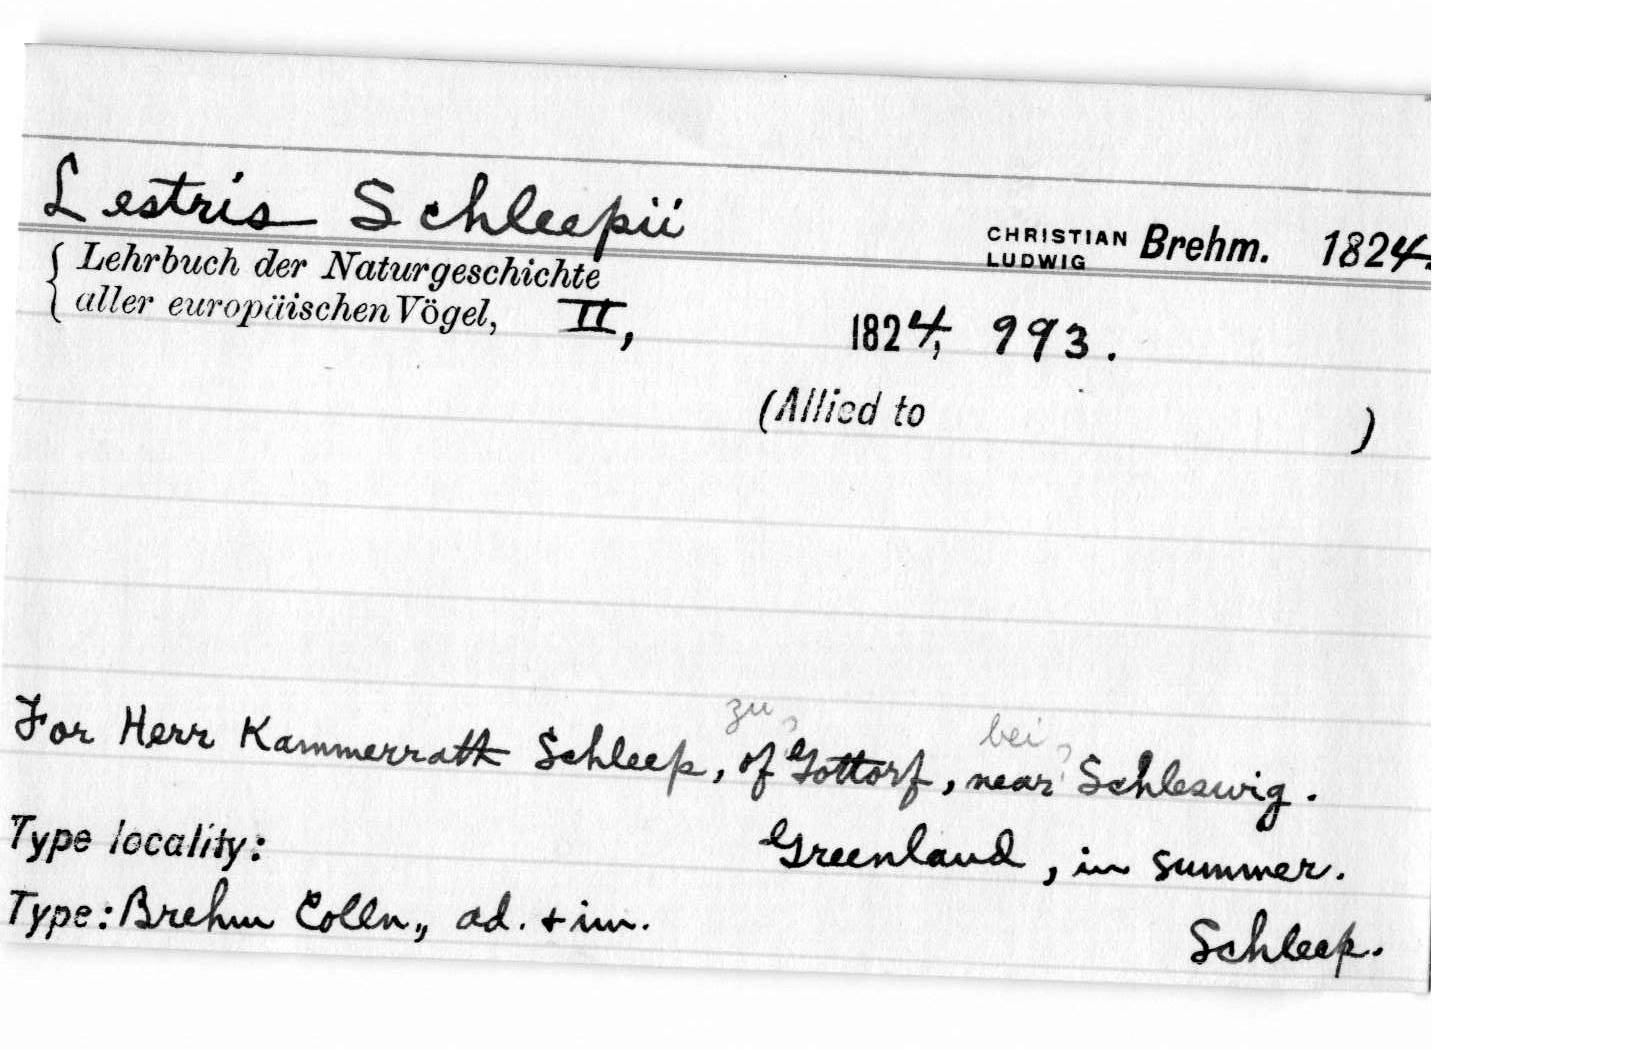 Lestris Schleepii
CHRISTIAN LUDWIG Brehm. 1824.
{ Lehrbuch der Naturgeschichte
aller europäischen Vögel, II, 1824, 993.
(Allied to )
zu, bei,
For Herr Kammerrath Schleep, of Gottorf, near Schleswig.
Type locality: Greenland, in summer.
Type: Brehm Colln., ad. + im.
Schleep.